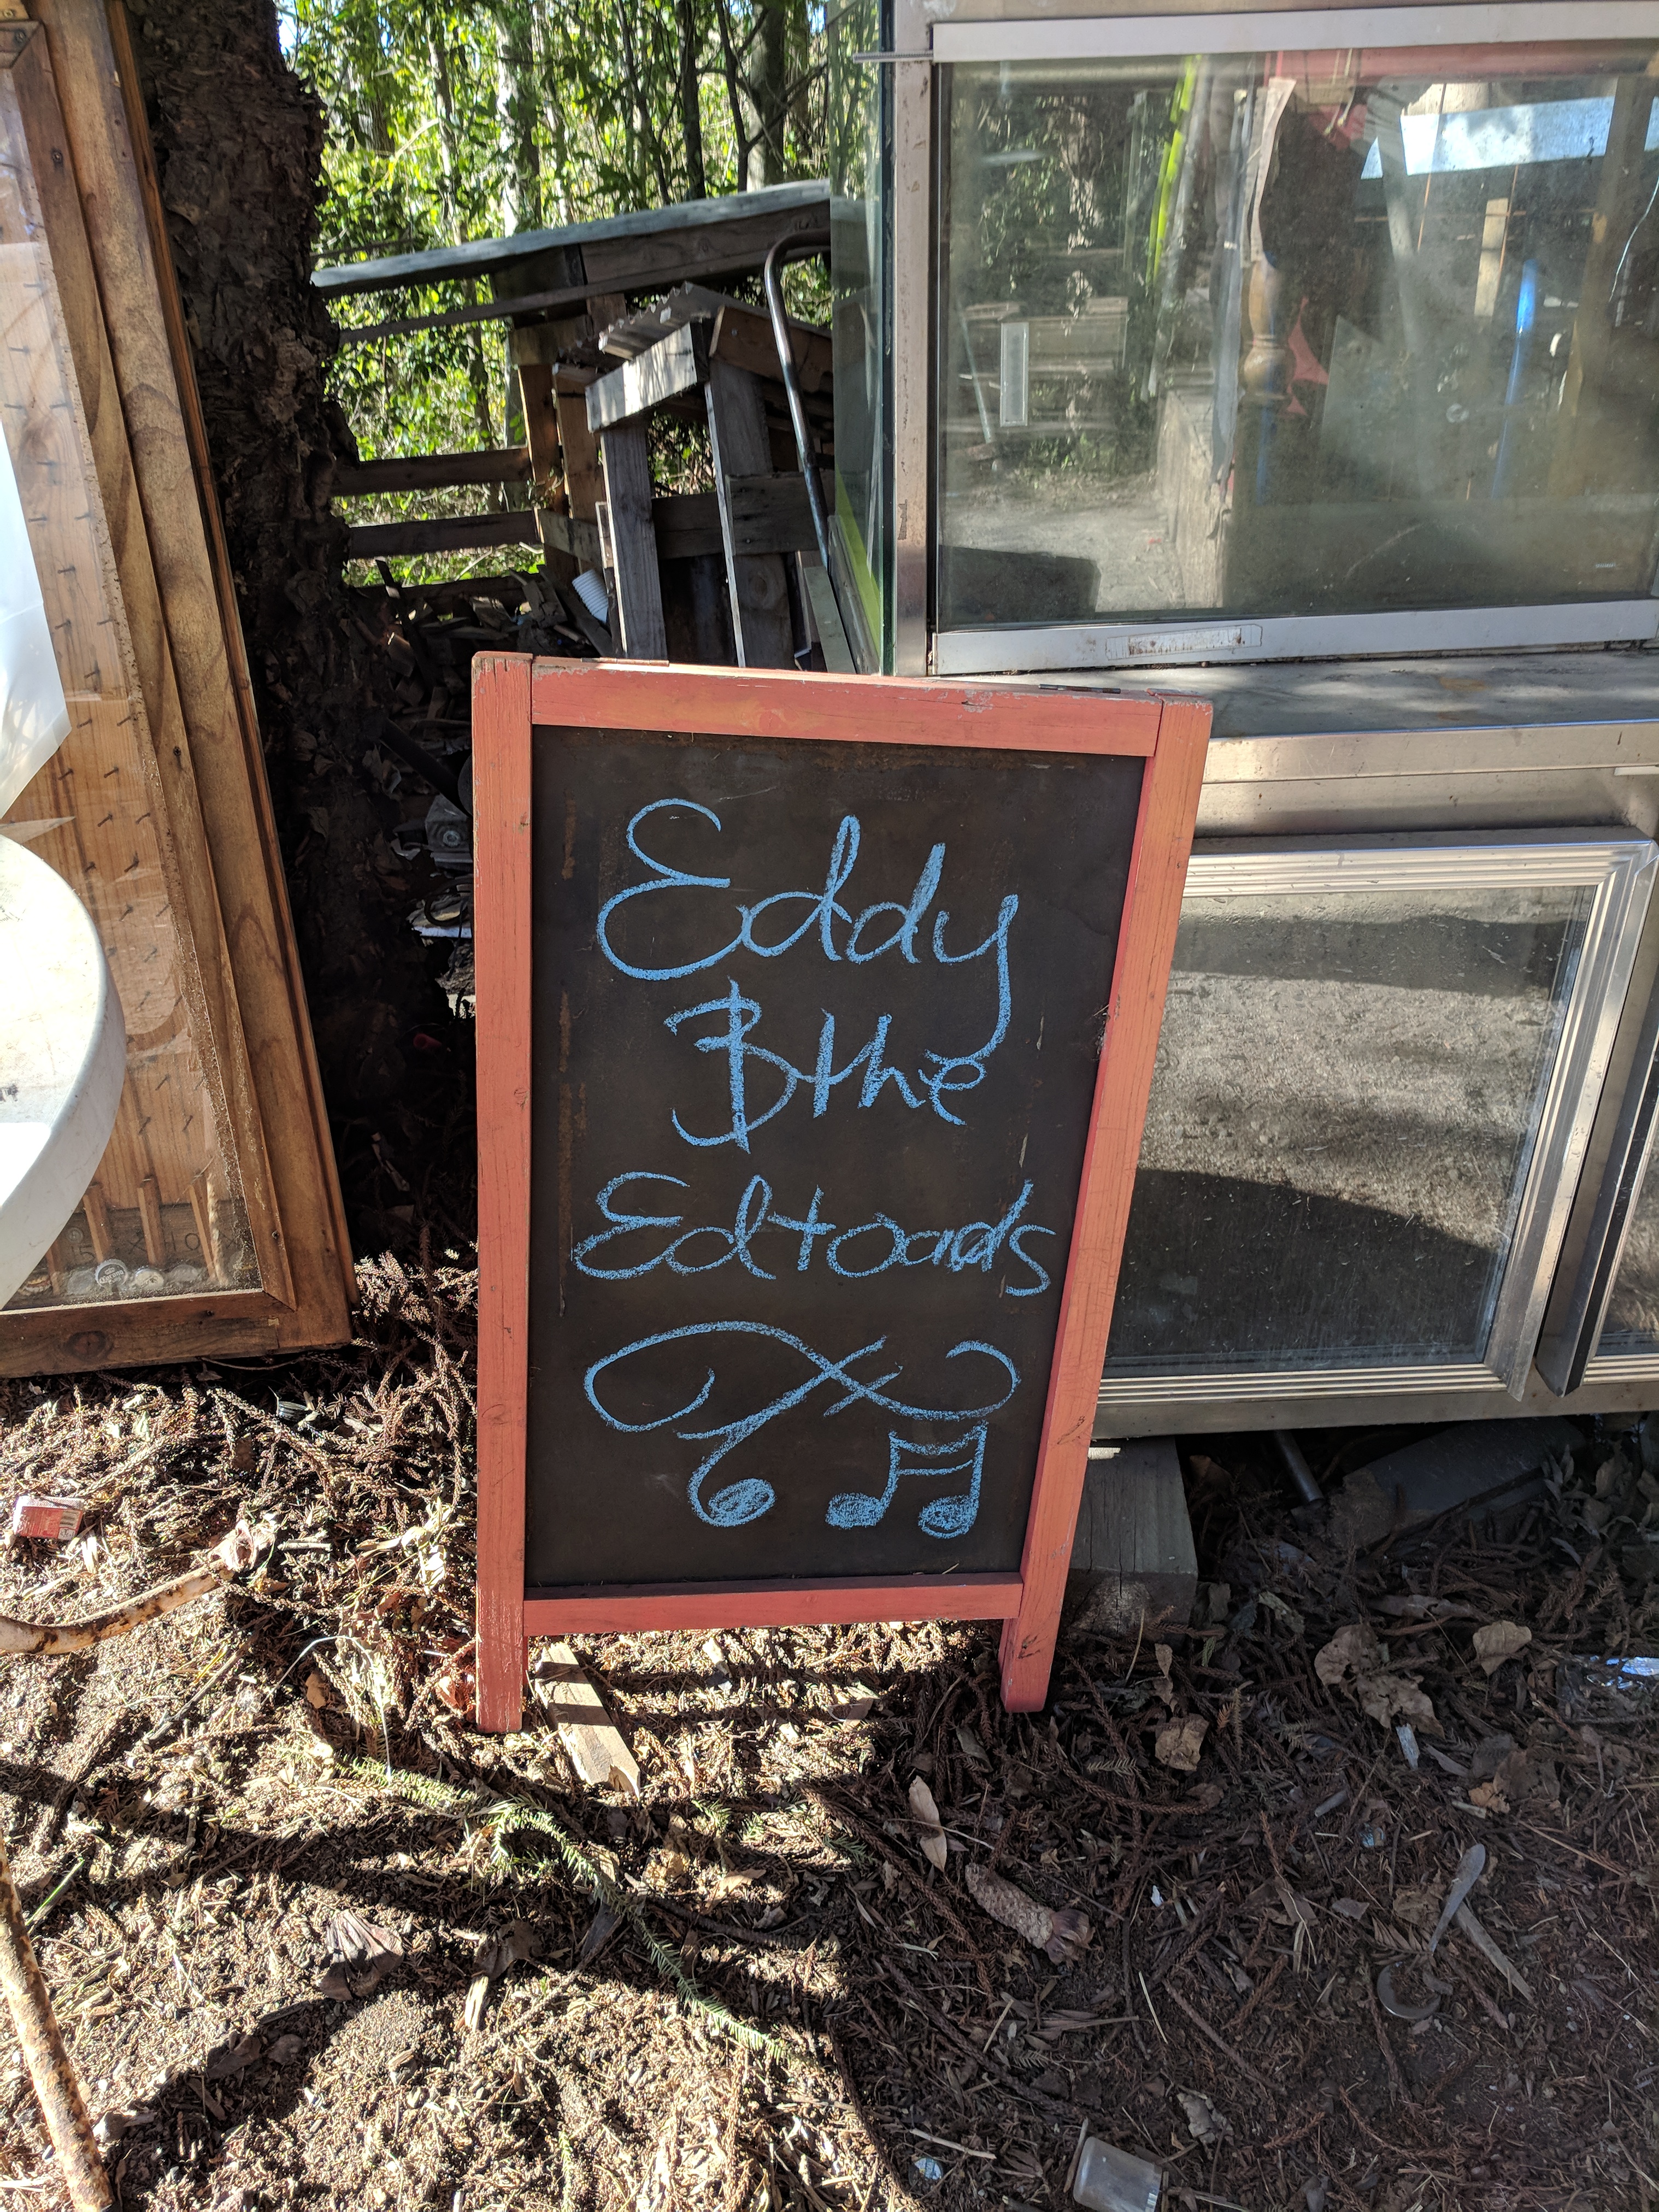 Eddy
& the
Edtoads